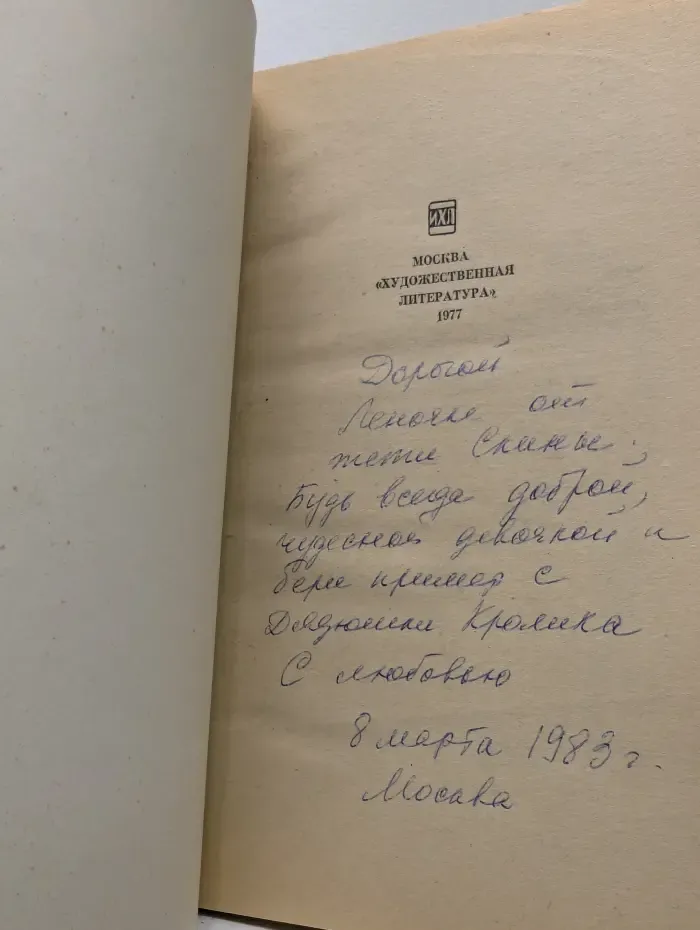 ИХЛ
МОСКВА
«ХУДОЖЕСТВЕННАЯ
ЛИТЕРАТУРА»
1977
Дорогой
Леночке от
тети
Будь всегда доброй,
чудесной девочкой и
бери пример с
Дядюшки Кролика
С любовью
8 марта 1983 г.
Москва